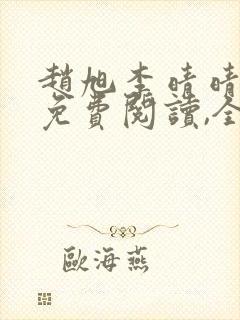 趙旭李晴晴
免費閱讀,全
歐海燕